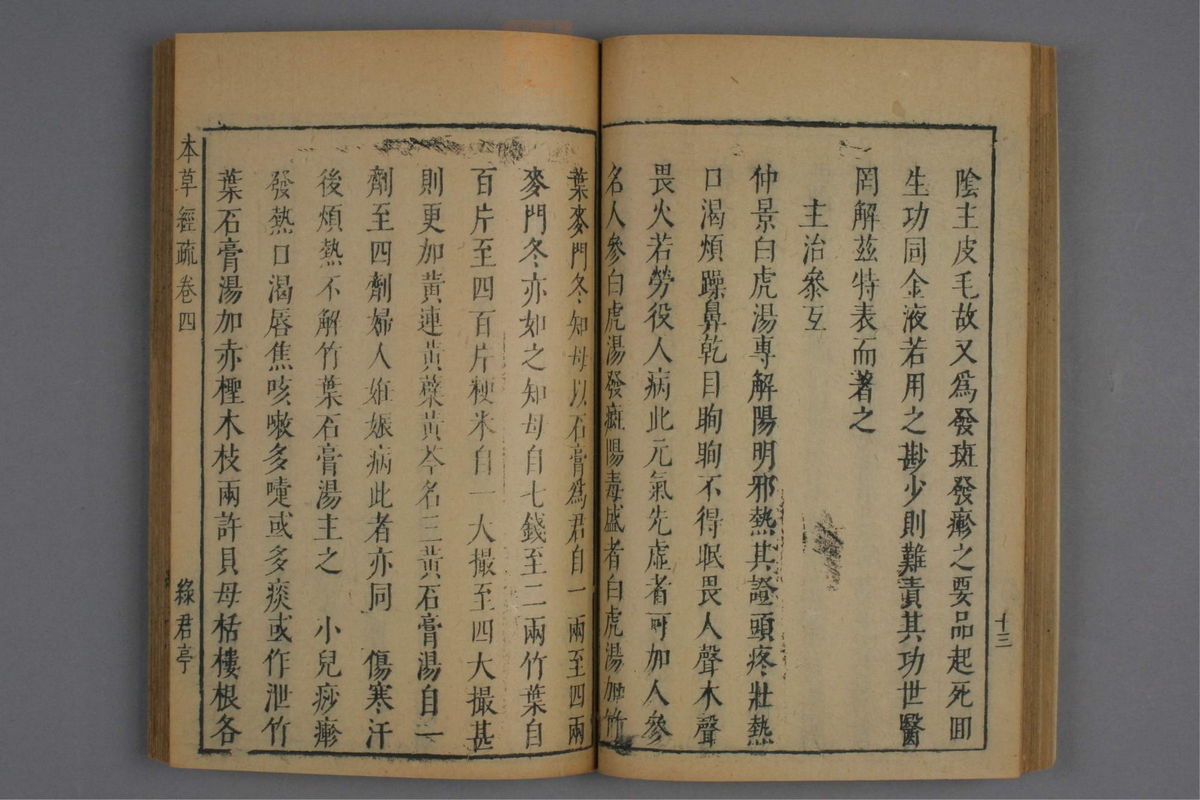 陰主皮毛故又爲發斑發疹之要品起死囬
生功同金液若用之尠少則難責其功世醫
罔解茲特表而著之
主治參互
仲景白虎湯專解陽明邪熱其證頭疼壯熱
口渴煩躁鼻乾目眴眴不得眠畏人聲木聲
畏火若勞役人病此元氣先虛者可加人參
名人參白虎湯發斑陽毒盛者白虎湯加竹
十三
葉麥門冬知母以石膏爲君自一兩至四兩
麥門冬亦如之知母自七錢至二兩竹葉自
百片至四百片粳米自一大撮至四大撮甚
則更加黃連黃蘗黃芩名三黃石膏湯自一
劑至四劑婦人姙娠病此者亦同 傷寒汗
後煩熱不解竹葉石膏湯主之 小兒痧疹
發熱口渴唇焦咳嗽多嚏或多痰或作泄竹
葉石膏湯加赤檉木枝兩許貝母栝樓根各
本草經疏卷四 綠君亭